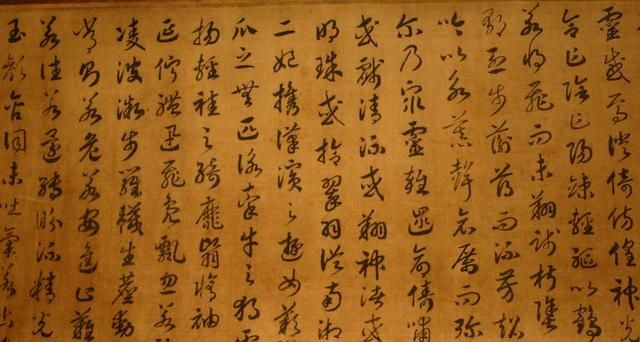 靈感焉徙倚傍徨神光
合乍陰乍陽竦輕軀以鶴
若將飛而未翔踐椒塗
郁烈步蘅薄而流芳超
吟以永慕聲哀厲而彌
爾乃眾靈雜遝命儔嘯
或戲清流或翔神渚或
明珠或拾翠羽從南湘
二妃攜漢濱之遊女歎
瓜之無匹詠牽牛之獨
揚輕袿之綺靡翳脩袖
延佇體迅飛鳧飄忽若
凌波微步羅襪生塵動
常則若危若安進止難
若往若還轉眄流精光
玉顏含詞未吐氣若